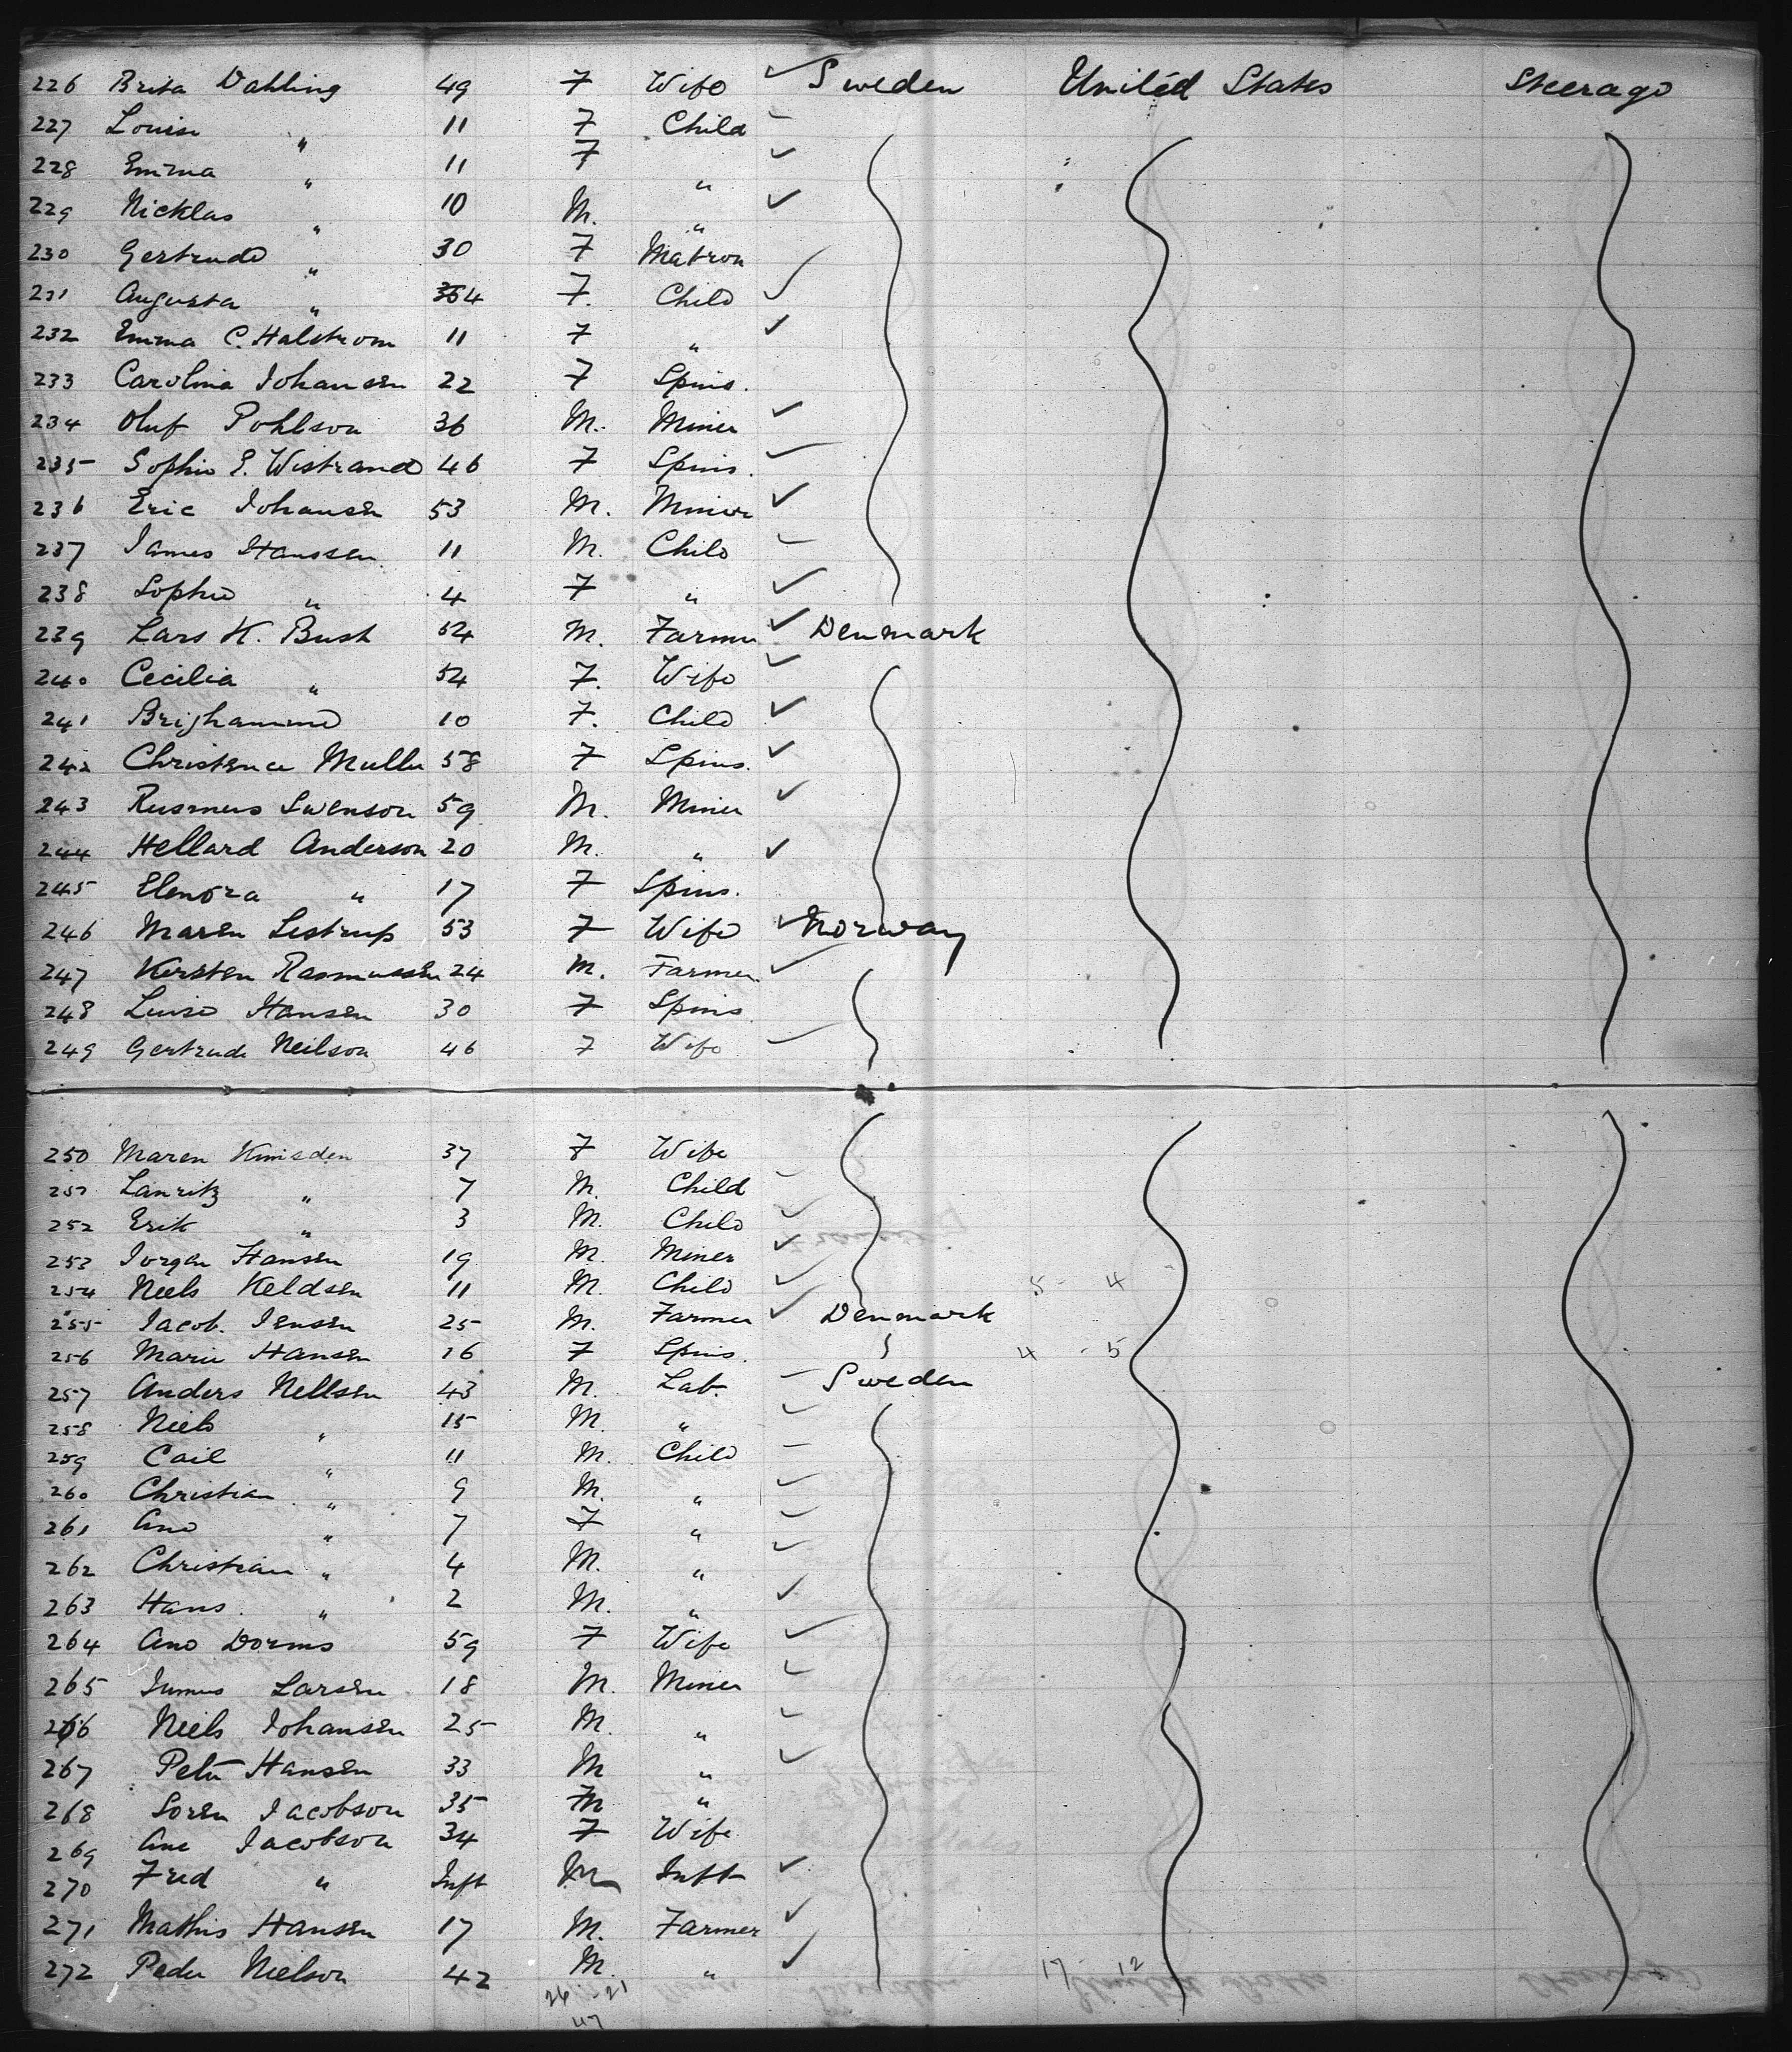 226 Brita Dahling 49 F Wife ✓ Sweden United States Steerage
227 Louise " 11 F Child
228 Emma " 11 F " ✓
229 Nicklas " 10 M. " ✓
230 Gertrude " 30 F Matron
231 Augusta " 4 F. Child ✓
232 Emma C. Halstrom 11 F " ✓
233 Carolina Johansen 22 F Spins.
234 Oluf Pohlson 36 M. Miner ✓
235 Sophie E. Wistrand 46 F Spins. ✓
236 Eric Johansen 53 M. Miner ✓
237 James Hanssen 11 M. Child
238 Sophie " 4 F " ✓
239 Lars K. Bush 54 M. Farmer ✓ Denmark
240 Cecilia " 54 F. Wife ✓
241 Brighamine 10 F. Child ✓
242 Christence Muller 58 F Spins. ✓
243 Rusmus Swenson 59 M. Miner ✓
244 Hellard Anderson 20 M. " ✓
245 Elenora " 17 F Spins.
246 Maren Lestrup 53 F Wife ✓ Norway
247 Kersten Rasmussen 24 M. Farmer ✓
248 Luise Hansen 30 F Spins
249 Gertrude Neilson 46 F Wife
250 Maren Kmisden 37 F Wife
251 Lauritz " 7 M. Child
252 Erik " 3 M. Child ✓
253 Jorgen Hansen 19 M. Miner ✓
254 Niels Keldsen 11 M. Child ✓ 5 - 4
255 Jacob. Jensen 25 M. Farmer ✓ Denmark
256 Marie Hansen 16 F Spins. 4 - 5
257 Anders Nellsen 43 M. Lab. Sweden
258 Niels " 15 M. " ✓
259 Cail " 11 M. Child
260 Christian " 9 M. " ✓
261 Ane " 7 F " ✓
262 Christian " 4 M. " ✓
263 Hans. " 2 M. " ✓
264 Ane Dorms 59 F Wife ✓
265 Larsen 18 M. Miner ✓
266 Niels Johansen 25 M. " ✓
267 Peter Hansen 33 M " ✓
268 Soren Jacobson 35 M "
269 Ane Jacobson 34 F Wife
270 Fred " Inft M Inft ✓
271 Mathis Hansen 17 M. Farmer ✓
272 Peder Nielson 42 M. " ✓ 17 - 12
26 - 21
47